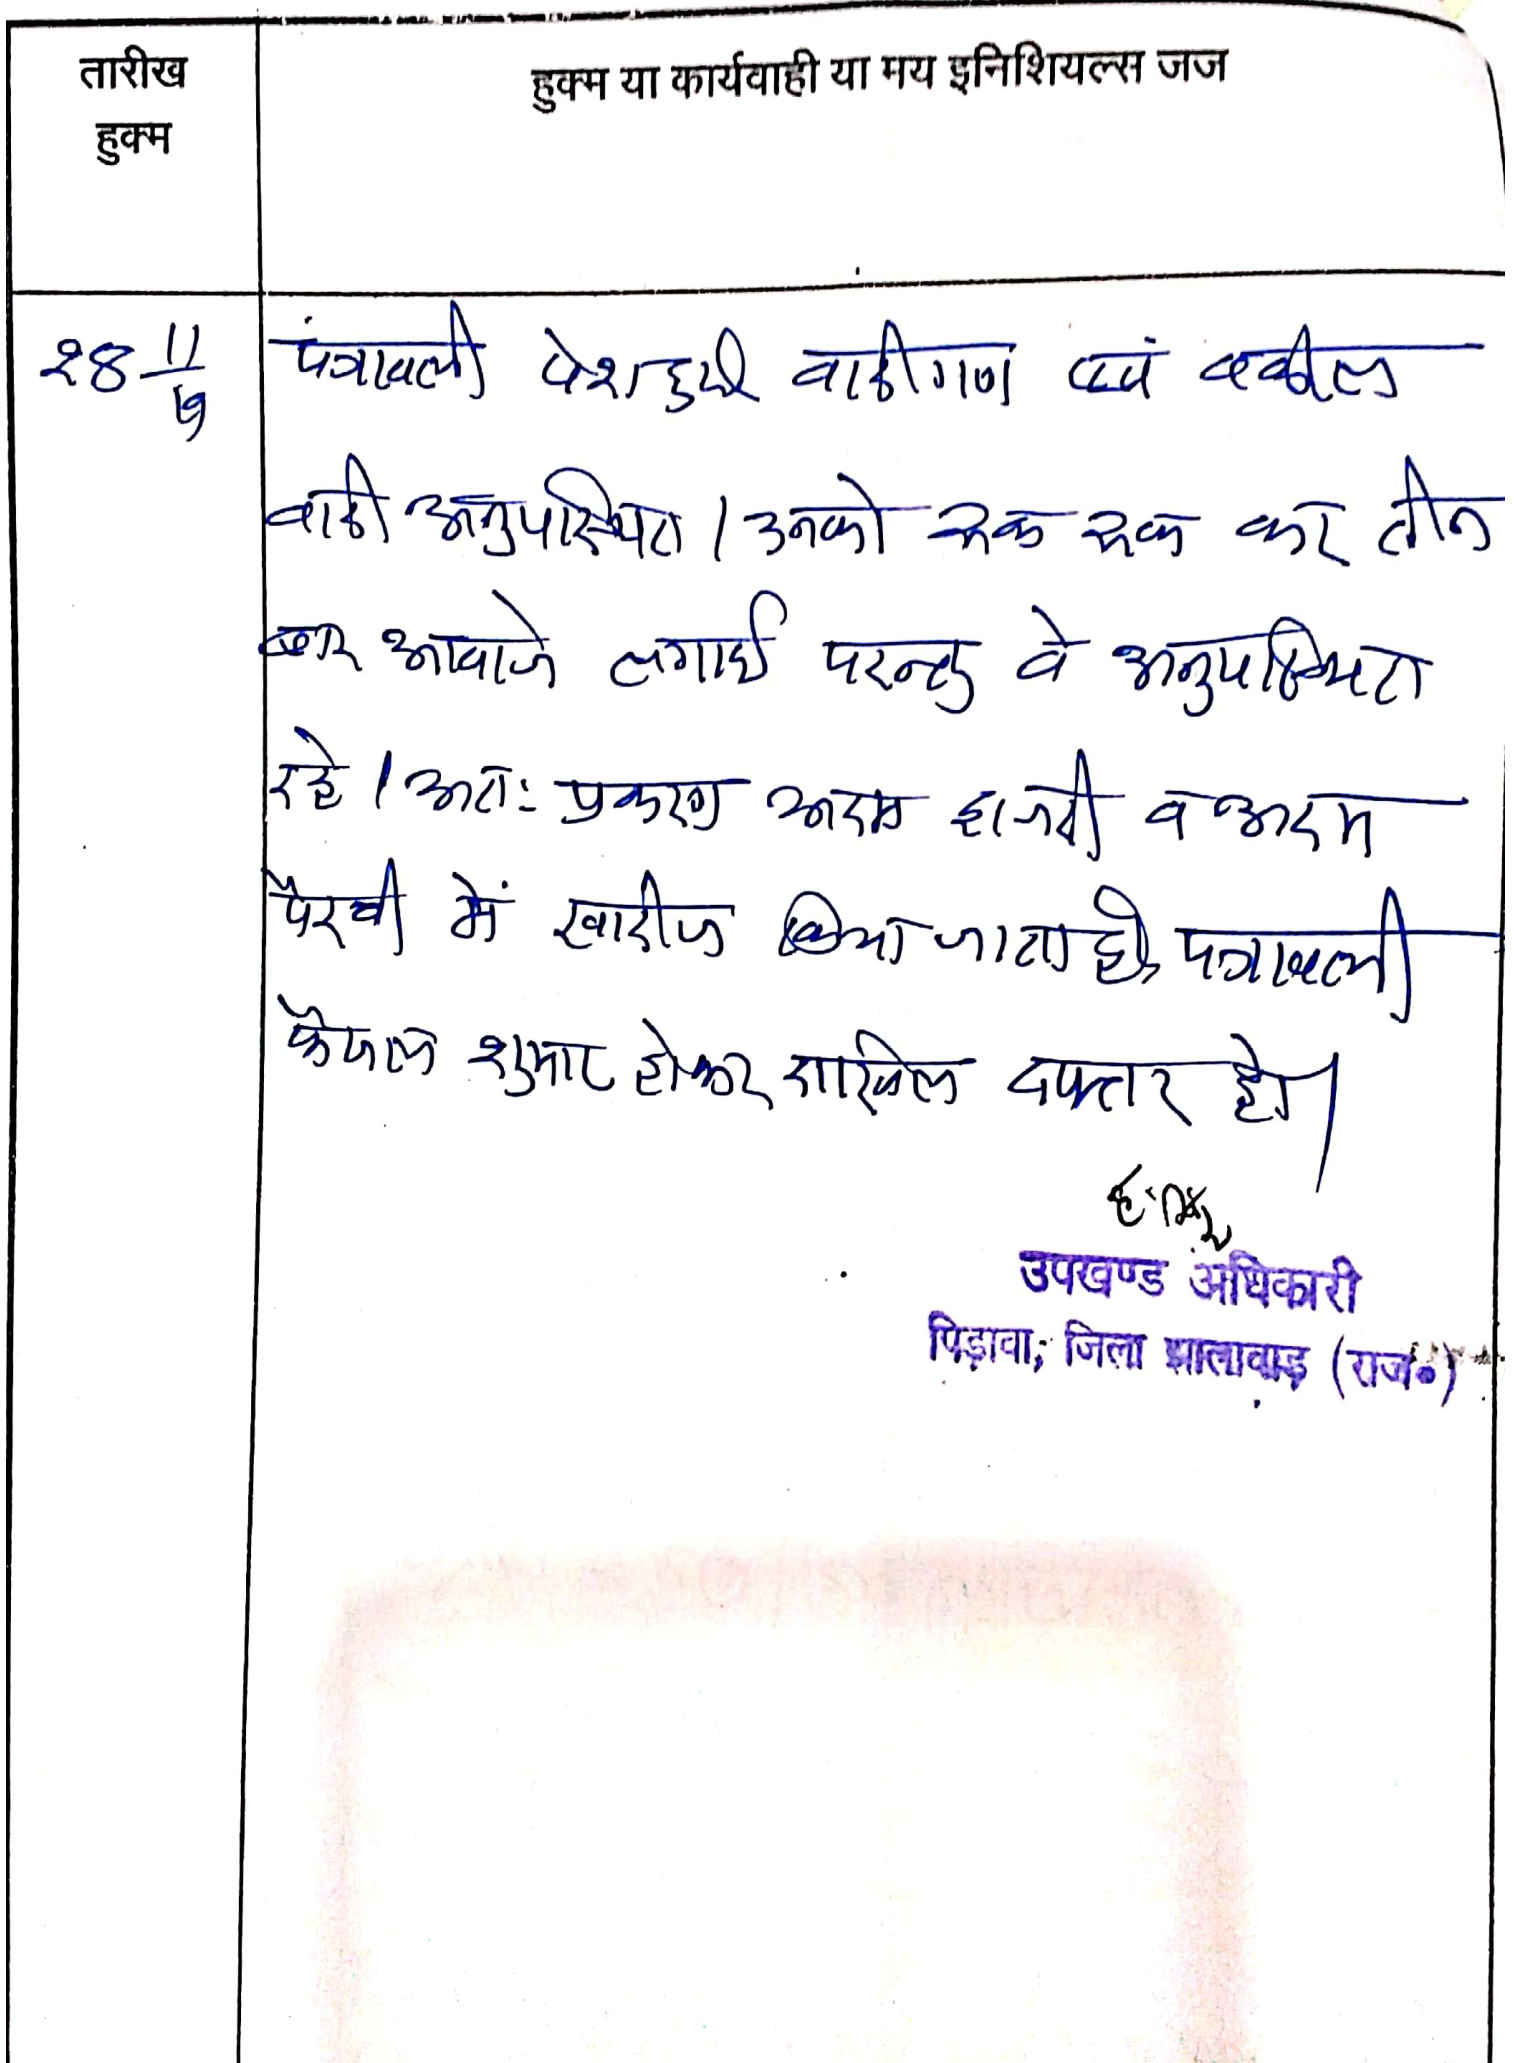 तारीख
हुक्म
हुक्म या कार्यवाही या मय इनिशियल्स जज
पंत्रावली पेश हुयी वादीगण एवं वकील
वादी अनुपस्थित । उनको एक एक कर तीन
बार आवाजे लगाई परन्तु वे अनुपस्थित
रहे । अतः प्रकरण अदम हाजरी व अदम
पैरवी में खारीज किया जाता है, पत्रावली
फैसल शुमार होकर दाखिल दफ्तर हो।
उपखण्ड अधिकारी
पिड़ावा, जिला झालावाड़ (राज०)